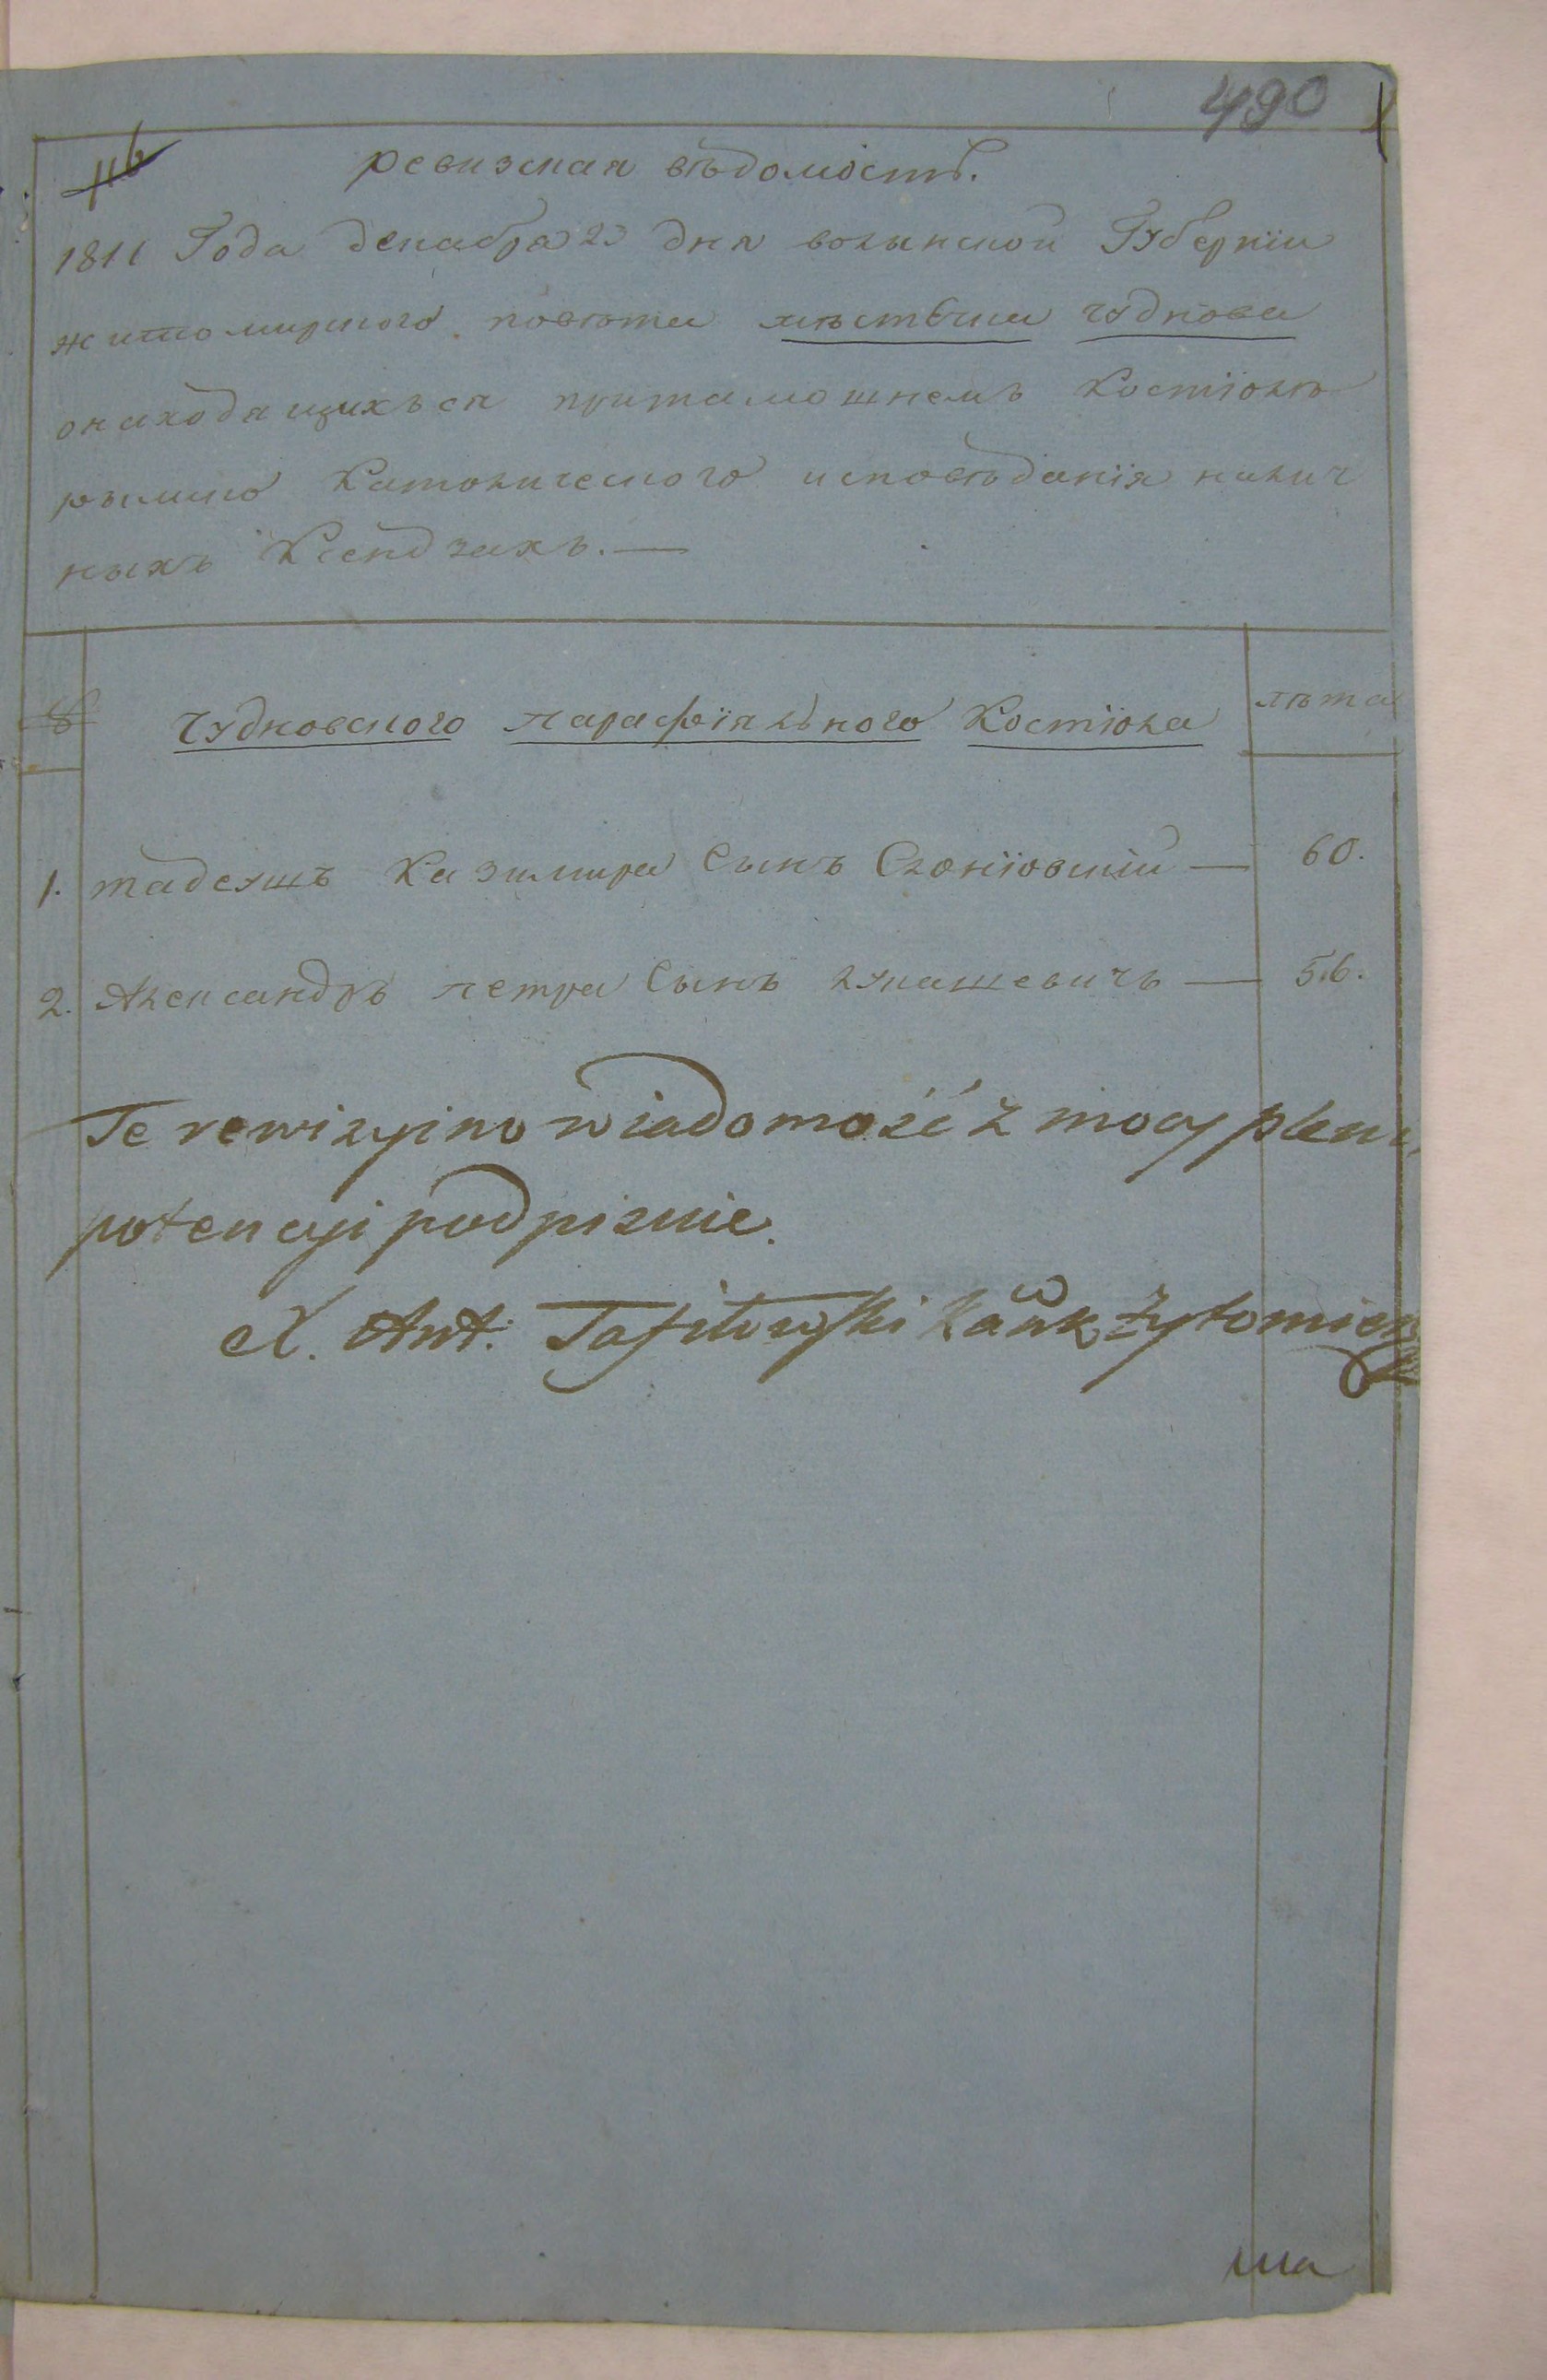 490
116
ревизская вѣдомость.
1811 Года декабра 23 дня волынской Губернiи
житомирского повѣта мѣстечка чуднова
онаходящихъся притамошнемъ Костiолѣ
рымско Католического исповѣданiя налич
ныхъ Ксендзахъ. —
№ чудновского парафiяльного Костiола лѣта
1. тадеушъ Казимира Сынъ — 60.
2. Александръ петра Сынъ лукашевичъ — 56.
Te rewizyino wiadomość z mocy pleni
potencyi podpisuie.
X. Ant: Kank Żytomier